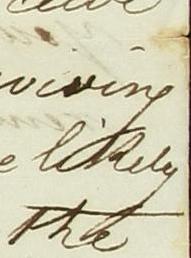 viving
e likely
the